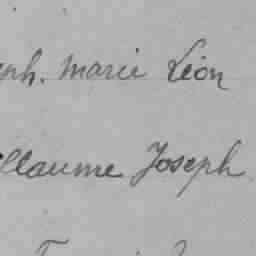 eph. Marie Léon
illaume Joseph